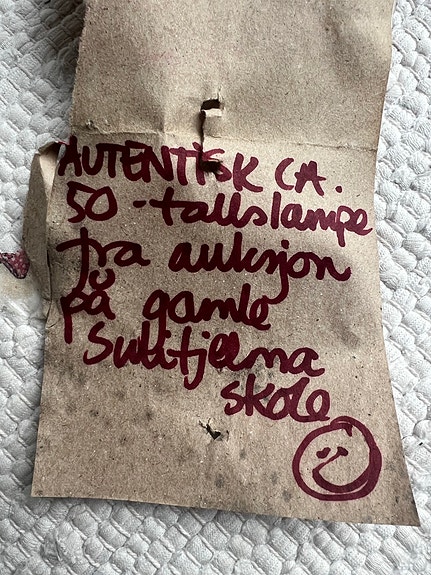 AUTENTISK CA.
50-tallslampe
fra auksjon
på gamle
skole